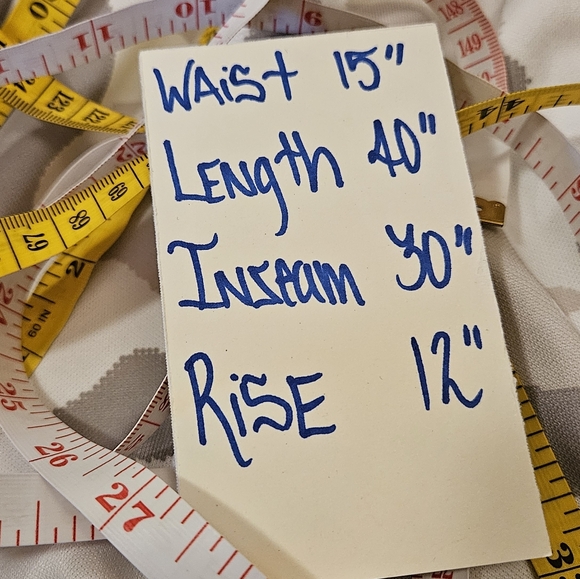 Waist 15"
Length 40"
Inseam 30"
Rise 12"
11
10
9
148
149
124
123
122
67
68
69
60 IN
24
25
26
27